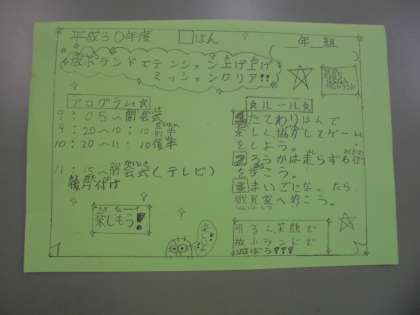 平成30年度 □はん
年 組
放ぷランドでテンション上げ上げ
ミッションクリア!!
プログラム☆
9:05〜開会式
9:20〜10:10前半
10:20〜11:10後半
11:15〜閉会式(テレビ)
後片付け
楽しもう!
☆ルール☆
1たてわりはんで
楽しく協力してゲーム
をしよう。
2ろうかは走らず右側
を歩こう。
3まいごになったら
へ行こう。
明るく笑顔で
放ぷランドで
遊ぼう!!!